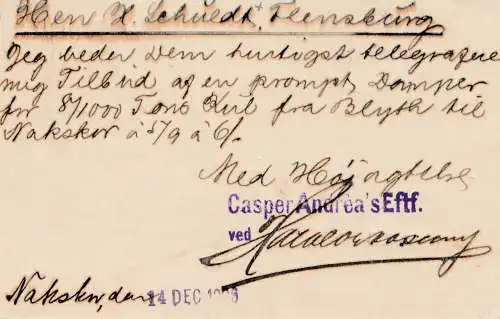 Herr H. Schuldt, Flensburg
Jeg beder Dem hurtigst telegrafere
mig Tilbud af en prompt Damper
for 8/1000 Tons Kul fra Blyth til
Nakskov à 5/9 à 6/.
Med Højagtelse
Casper Andrea's Eftf.
ved
Nakskov, den
14 DEC